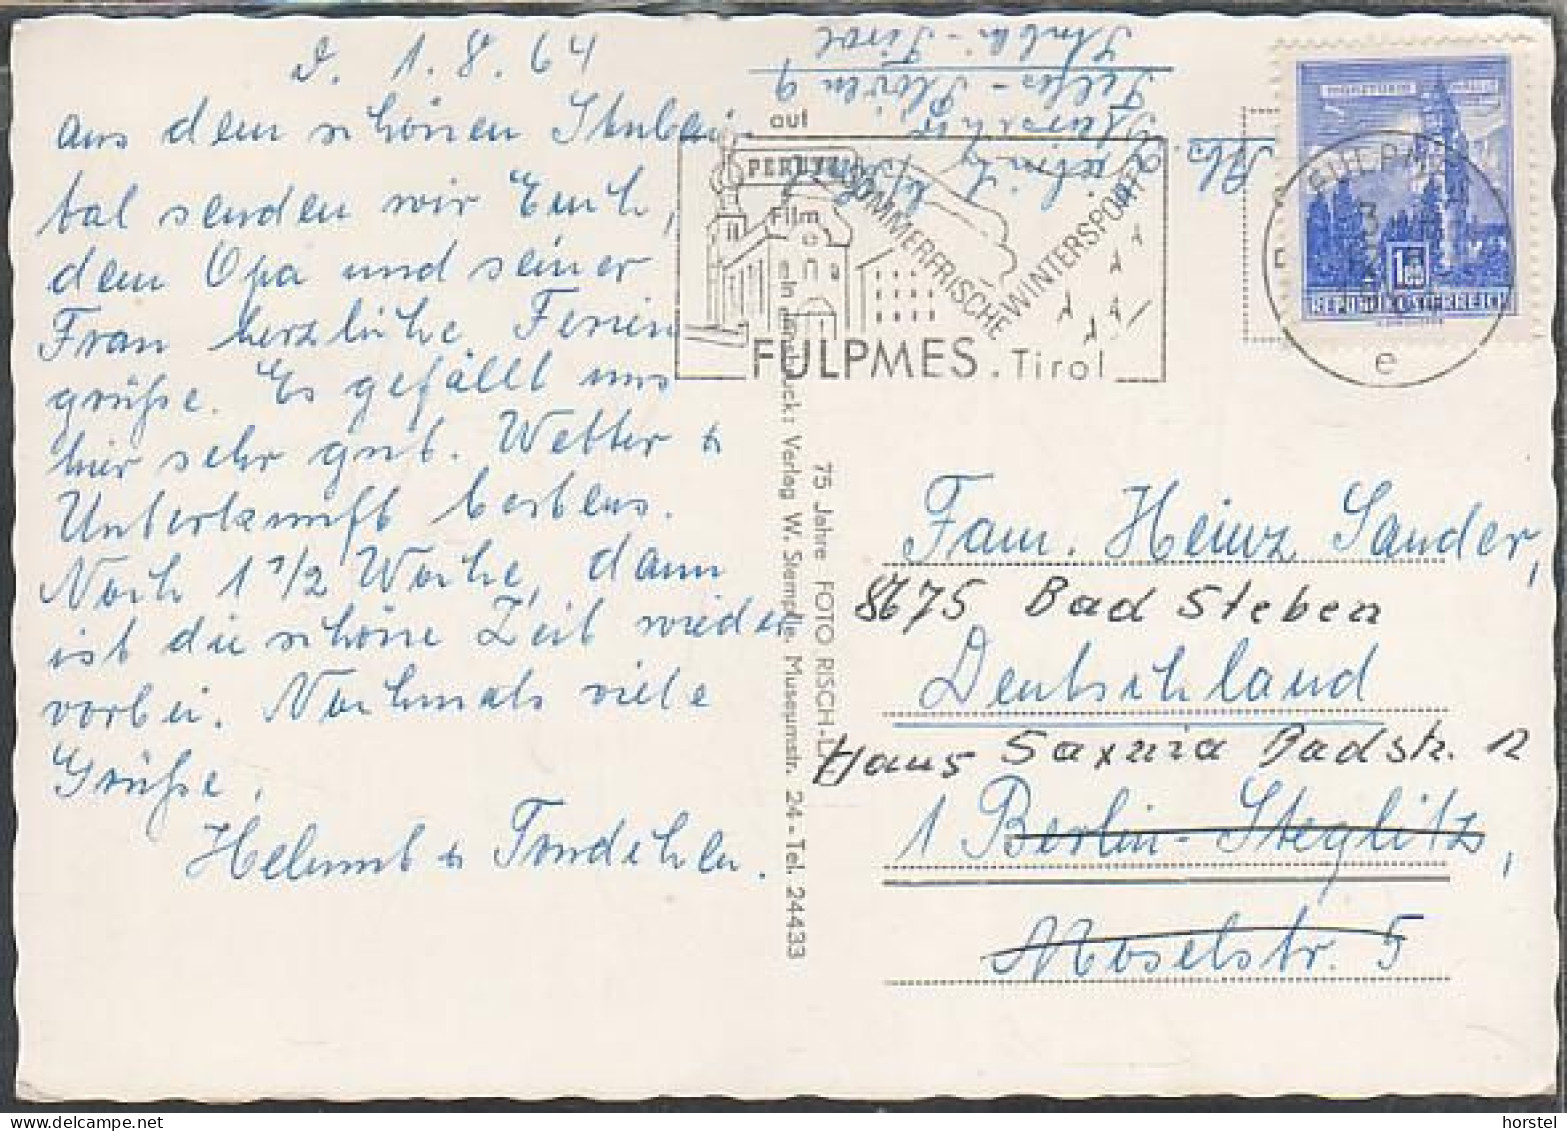 d. 1.8.64
aus dem schönen Stubai-
tal senden wir Euch,
dem Opa und seiner
Frau herzliche Ferien
grüße. Es gefällt uns
hier sehr gut. Wetter &
Unterkunft bestens.
Noch 1 1/2 Woche, dann
ist die schöne Zeit wieder
vorbei. Nochmals viele
Grüße,
Helmut &
Abs.
Telfes - Plöven 9
Stubai - Tirol
auf
PERUTZ
Film
SOMMERFRISCHE WINTERSPORT
FULPMES. Tirol
FULPMES
e
1.50
REPUBLIK ÖSTERREICH
75 Jahre FOTO RISCH-L
Innsbruck: Verlag W. Stempfle, Museumstr. 24 - Tel. 24433
Fam. Heinz Sander,
8675 Bad Steben
Deutschland
Haus Saxonia Badstr. 12
1 Berlin-Steglitz,
Moselstr. 5
horstel
www.delcampe.net